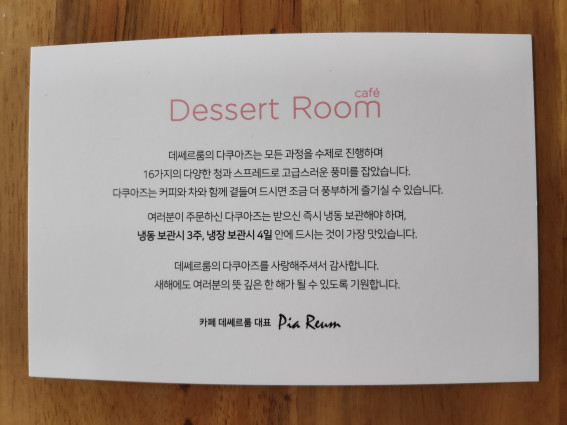 café
Dessert Room
데쎄르룸의 다쿠아즈는 모든 과정을 수제로 진행하며
16가지의 다양한 청과 스프레드로 고급스러운 풍미를 잡았습니다.
다쿠아즈는 커피와 차와 함께 곁들여 드시면 조금 더 풍부하게 즐기실 수 있습니다.
여러분이 주문하신 다쿠아즈는 받으신 즉시 냉동 보관해야 하며,
냉동 보관시 3주, 냉장 보관시 4일 안에 드시는 것이 가장 맛있습니다.
데쎄르룸의 다쿠아즈를 사랑해주셔서 감사합니다.
새해에도 여러분의 뜻 깊은 한 해가 될 수 있도록 기원합니다.
카페 데쎄르룸 대표 Pia Reum